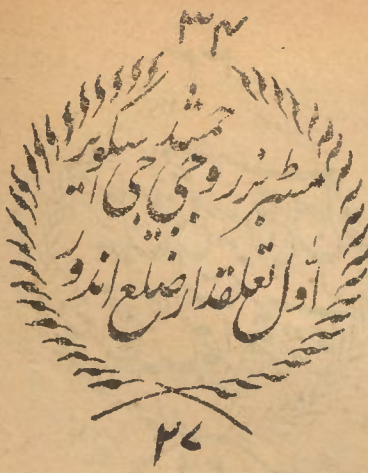 ۳۴
مسٹر بزروجی جمشید جی اسکویر
اول تعلقدار ضلع اندور